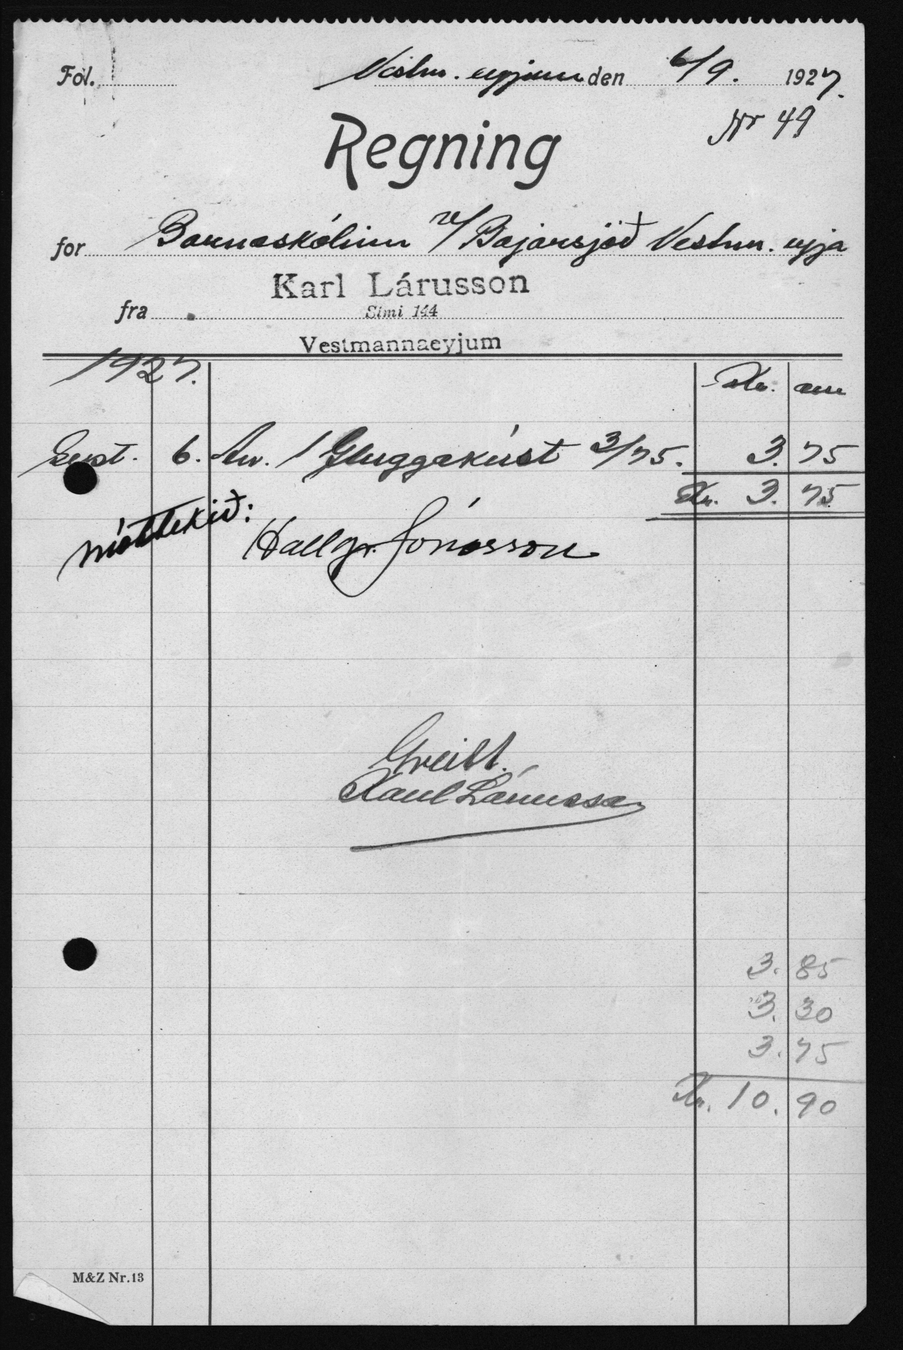 Fol. Vestm. eyjum den 6/9. 1927.
Nr 49
Regning
for Barnaskólinn v/ Bæjarsjóð Vestm. eyja
Karl Lárusson
fra Simi 144
Vestmannaeyjum
1927. Kr. aur
Sept. 6. An. 1 Gluggakúst 3/75. 3.75
Kr. 3.75
móttekið: Hallgr. Jónasson
Greitt.
Karl Lárusson
3.85
3.30
3.75
Kr. 10.90
M&Z Nr.13